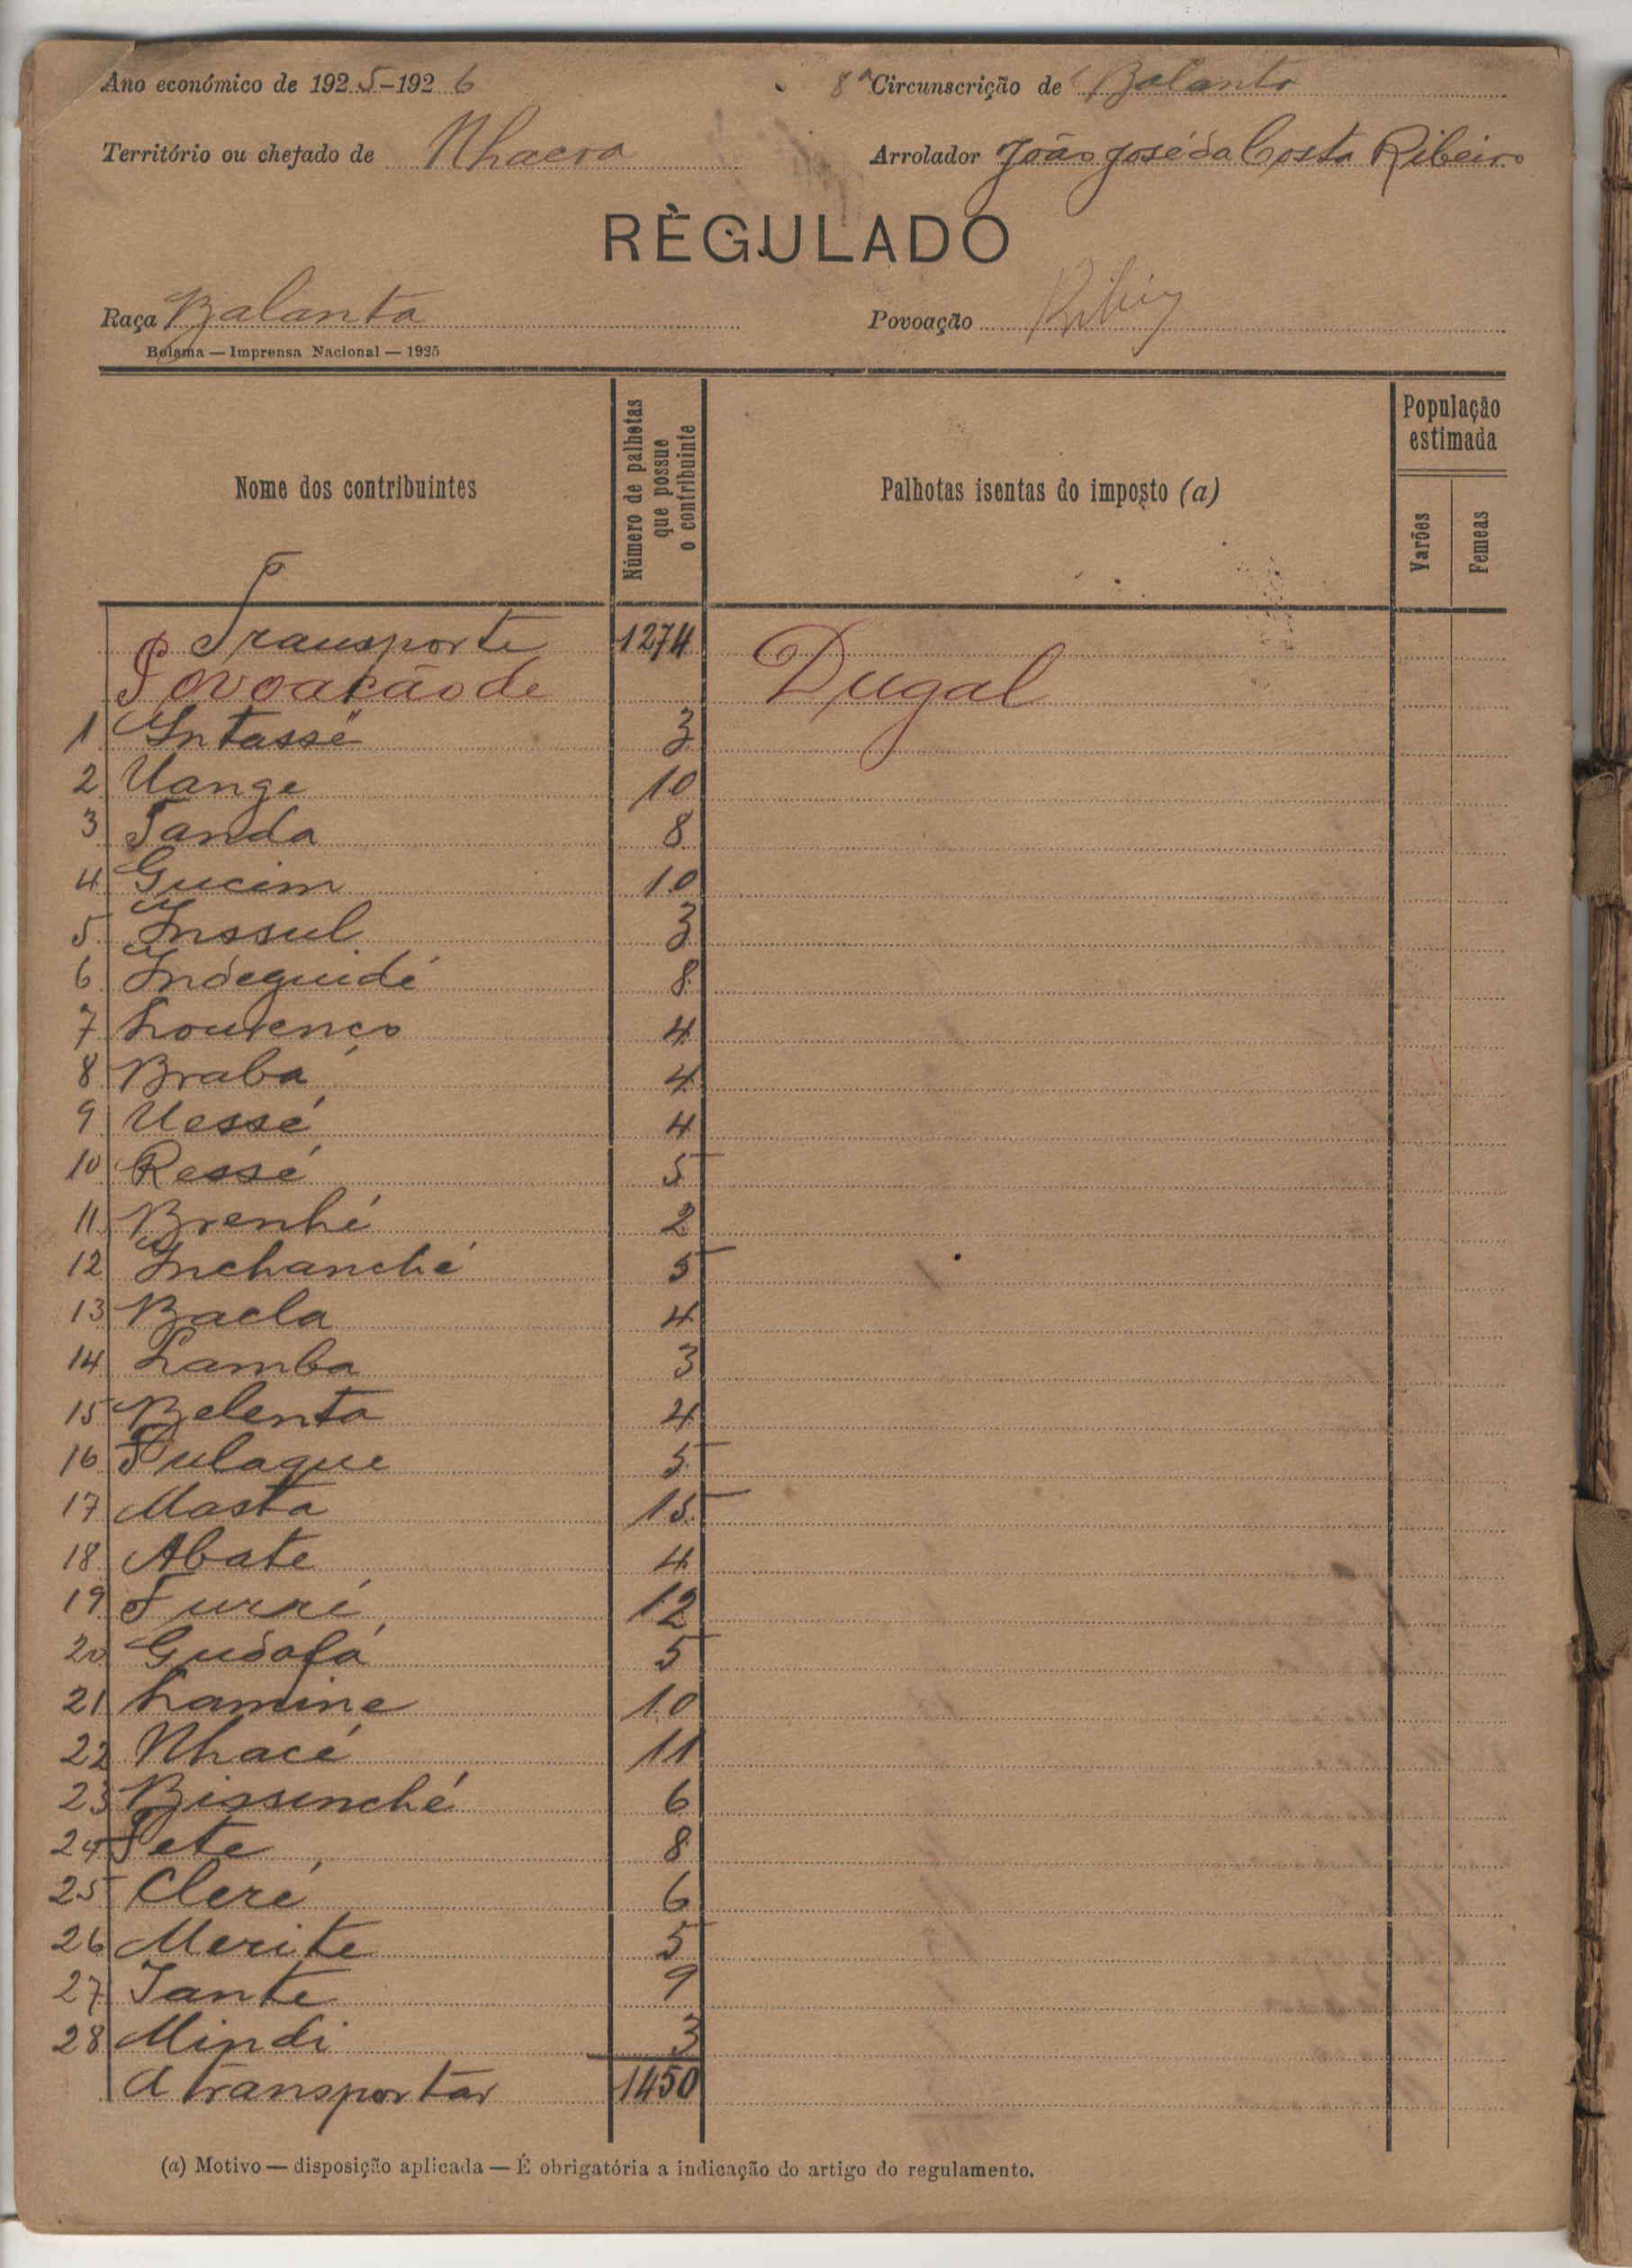 Ano económico de 1925-1926
8ª Circunscrição de Balanta
Território ou chefado de Nhacra
Arrolador João José da Costa Ribeiro
RÈGULADO
Raça Balanta
Povoação
Bolama — Imprensa Nacional — 1925
Nome dos contribuintes
Número de palhotas que possue o contribuinte
Palhotas isentas do imposto (a)
População estimada
Varões
Femeas
Transporte 1274
Povoação de Dugal
1 Intassé 3
2 Uange 10
3 Tanda 8
4 Gucim 10
5 Inssul 3
6 Indeguidé 8
7 Lourenço 4
8 Brabá 4
9 Uessé 4
10 Ressé 5
11 Brenhé 2
12 Inchanché 5
13 Bacla 4
14 Lamba 3
15 Belenta 4
16 Pulaque 5
17 Masta 15
18 Abate 4
19 12
20 Gudofá 5
21 Lamine 10
22 Nhacé 11
23 Bissinché 6
24 Pete 8
25 Cleré 6
26 Merite 5
27 Tante 9
28 Mindi 3
A transportar 1450
(a) Motivo — disposição aplicada — É obrigatória a indicação do artigo do regulamento.